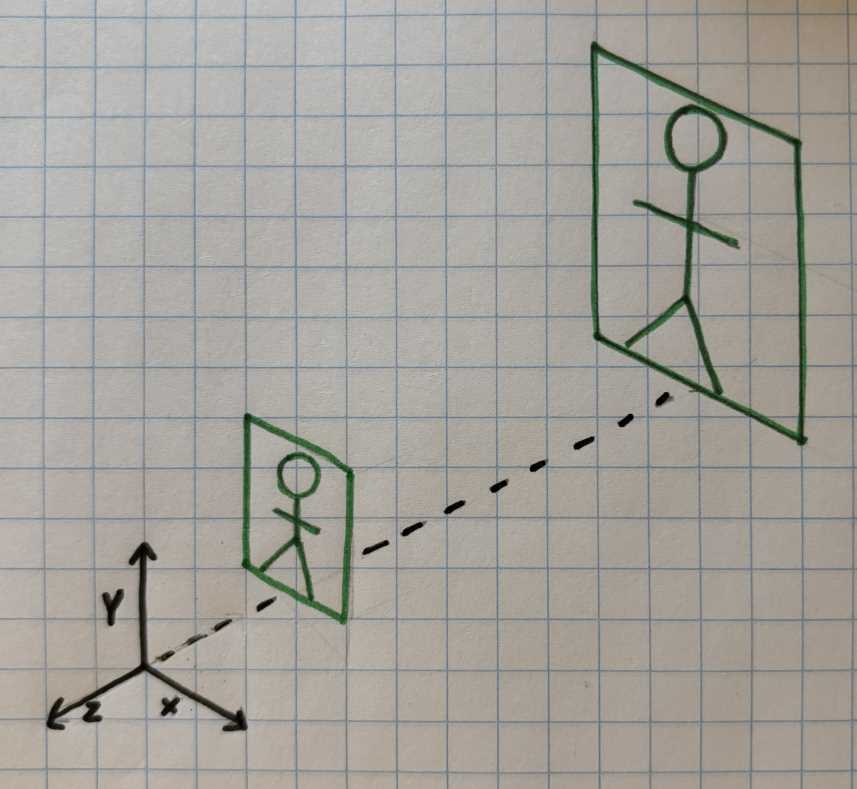 Y
z x